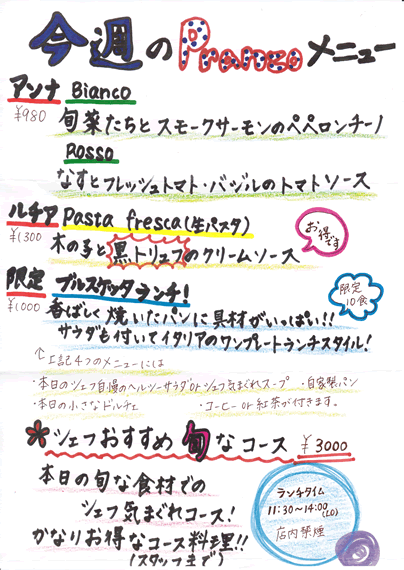 今週のPranzoメニュー
アンナ Bianco
¥980
旬菜たちとスモークサーモンのペペロンチーノ
Rosso
なすとフレッシュトマト・バジルのトマトソース
ルチア Pasta fresca(生パスタ)
お得です
¥1300
木の子と黒トリュフのクリームソース
限定 ブルスケッタランチ!
限定10食
¥1000
香ばしく焼いたパンに具材がいっぱい!!
サラダも付いてイタリアのワンプレートランチスタイル!
↑上記4つのメニューには
・本日のシェフ自慢のヘルシーサラダorシェフ気まぐれスープ ・自家製パン
・本日の小さなドルチェ ・コーヒーor紅茶が付きます。
*シェフおすすめ旬なコース ¥3000
本日の旬な食材での
シェフ気まぐれコース!
かなりお得なコース料理!!
(スタッフまで)
ランチタイム
11:30~14:00(LO)
店内禁煙